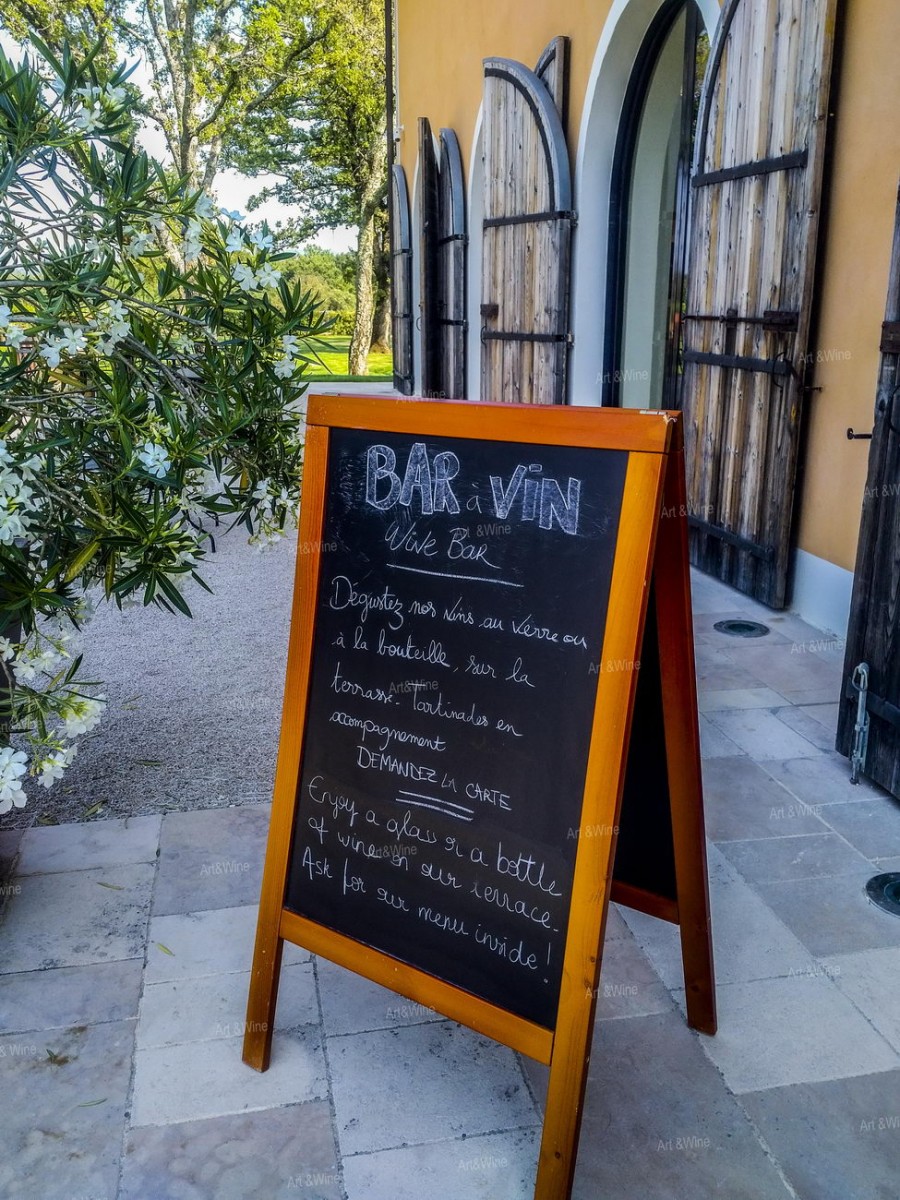 BAR à VIN
Wine Bar
Dégustez nos vins au verre ou
à la bouteille, sur la
terrasse. Tartinades en
accompagnement
DEMANDEZ LA CARTE
Enjoy a glass or a bottle
of wine on our terrace.
Ask for our menu inside!
Art &Wine